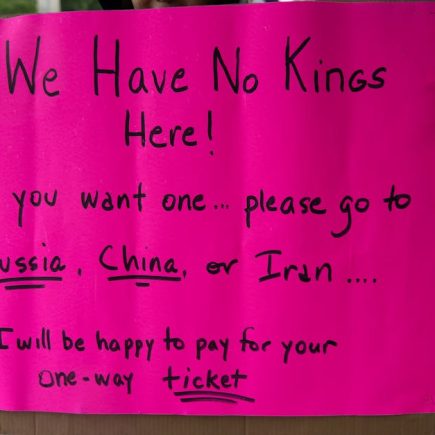 We Have No Kings
Here!
you want one... please go to
ussia, China, or Iran....
I will be happy to pay for your
one-way ticket